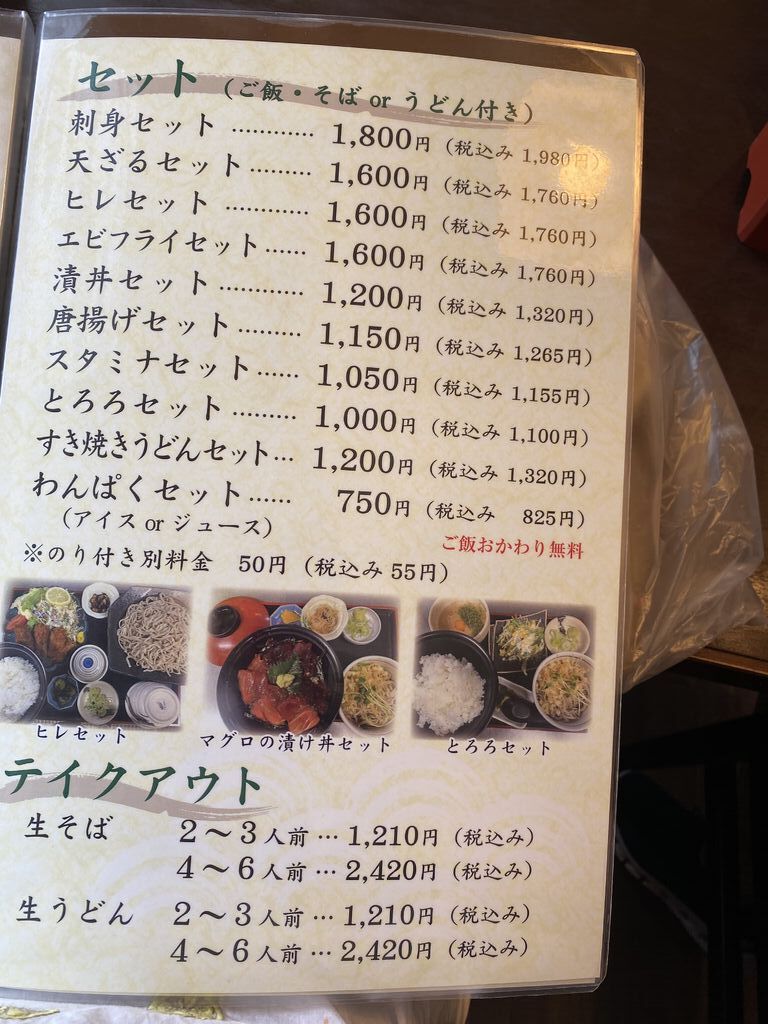 セット（ご飯・そば or うどん付き）
刺身セット ………… 1,800円（税込み 1,980円）
天ざるセット ……… 1,600円（税込み 1,760円）
ヒレセット ………… 1,600円（税込み 1,760円）
エビフライセット …… 1,600円（税込み 1,760円）
漬丼セット ………… 1,200円（税込み 1,320円）
唐揚げセット ……… 1,150円（税込み 1,265円）
スタミナセット …… 1,050円（税込み 1,155円）
とろろセット ……… 1,000円（税込み 1,100円）
すき焼きうどんセット… 1,200円（税込み 1,320円）
わんぱくセット …… 750円（税込み 825円）
（アイス or ジュース）
ご飯おかわり無料
※のり付き別料金 50円（税込み 55円）
ヒレセット
マグロの漬け丼セット
とろろセット
テイクアウト
生そば 2～3人前 … 1,210円（税込み）
4～6人前 … 2,420円（税込み）
生うどん 2～3人前 … 1,210円（税込み）
4～6人前 … 2,420円（税込み）